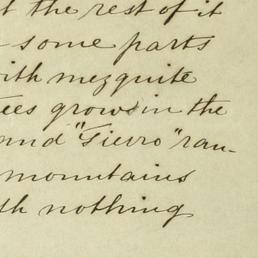 t the rest of it
some parts
with mezquite
ees grows in the
and "Fierro" ran-
mountains
th nothing